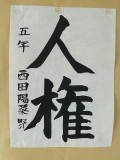 人権
五年 西田陽菜